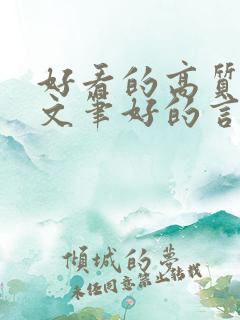 好看的高质
文笔好的言
倾城的梦
未经同意禁止转载